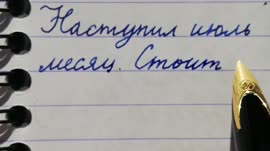 Наступил июль
месяц. Стоит